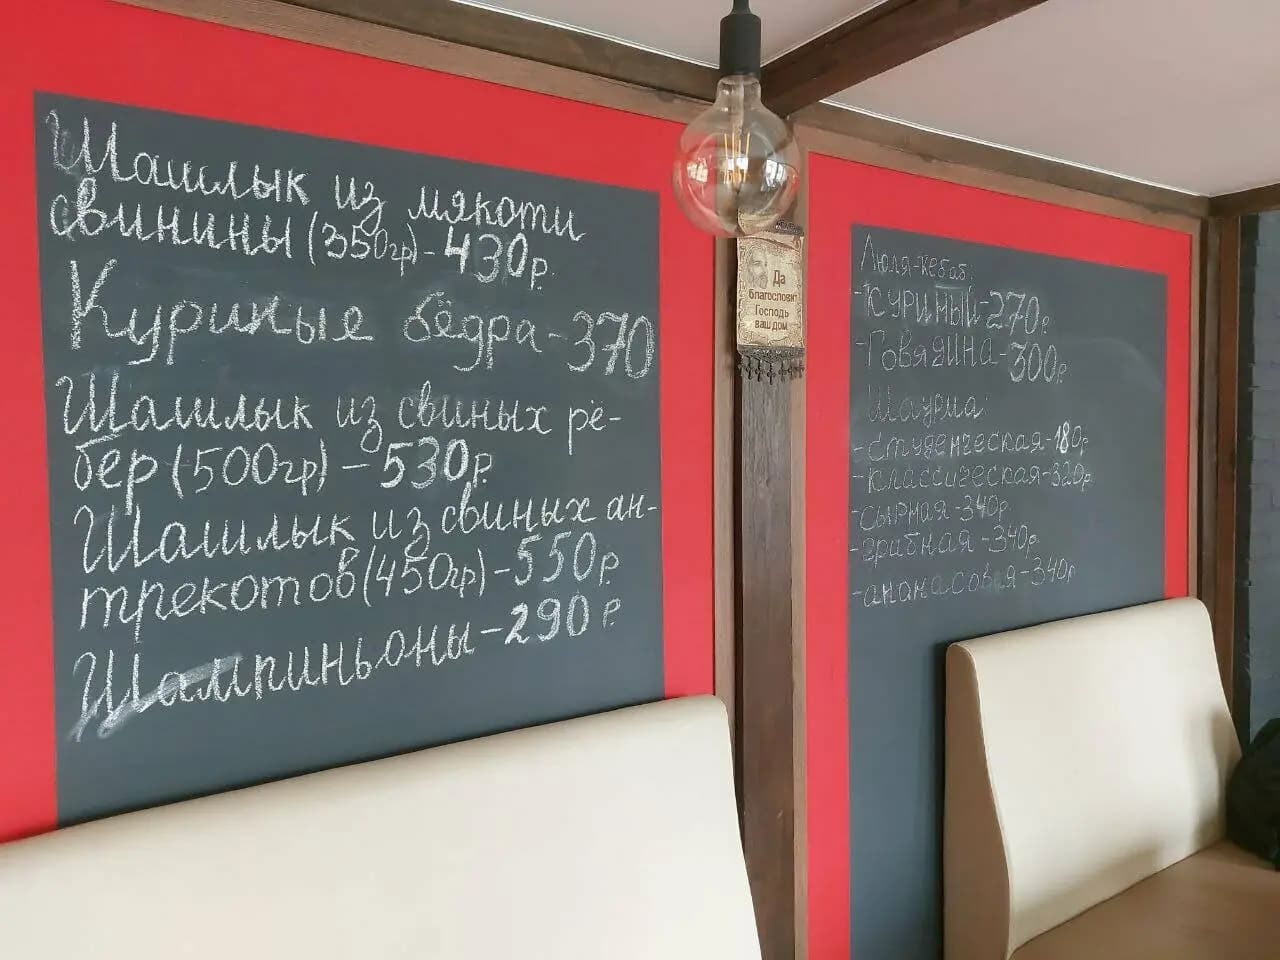 Шашлык из мякоти
свинины (350гр) - 430р.
Куриные бёдра - 370
Шашлык из свиных рё-
бер (500гр) - 530р.
Шашлык из свиных ан-
трекотов (450гр) - 550р.
Шампиньоны - 290р.
Да
благословит
Господь
ваш дом
Люля-кебаб:
- Куриный - 270р.
- Говядина - 300р.
Шаурма:
- Студенческая - 180р.
- классическая - 320р.
- сырная - 340р.
- грибная - 340р.
- ананасовая - 340р